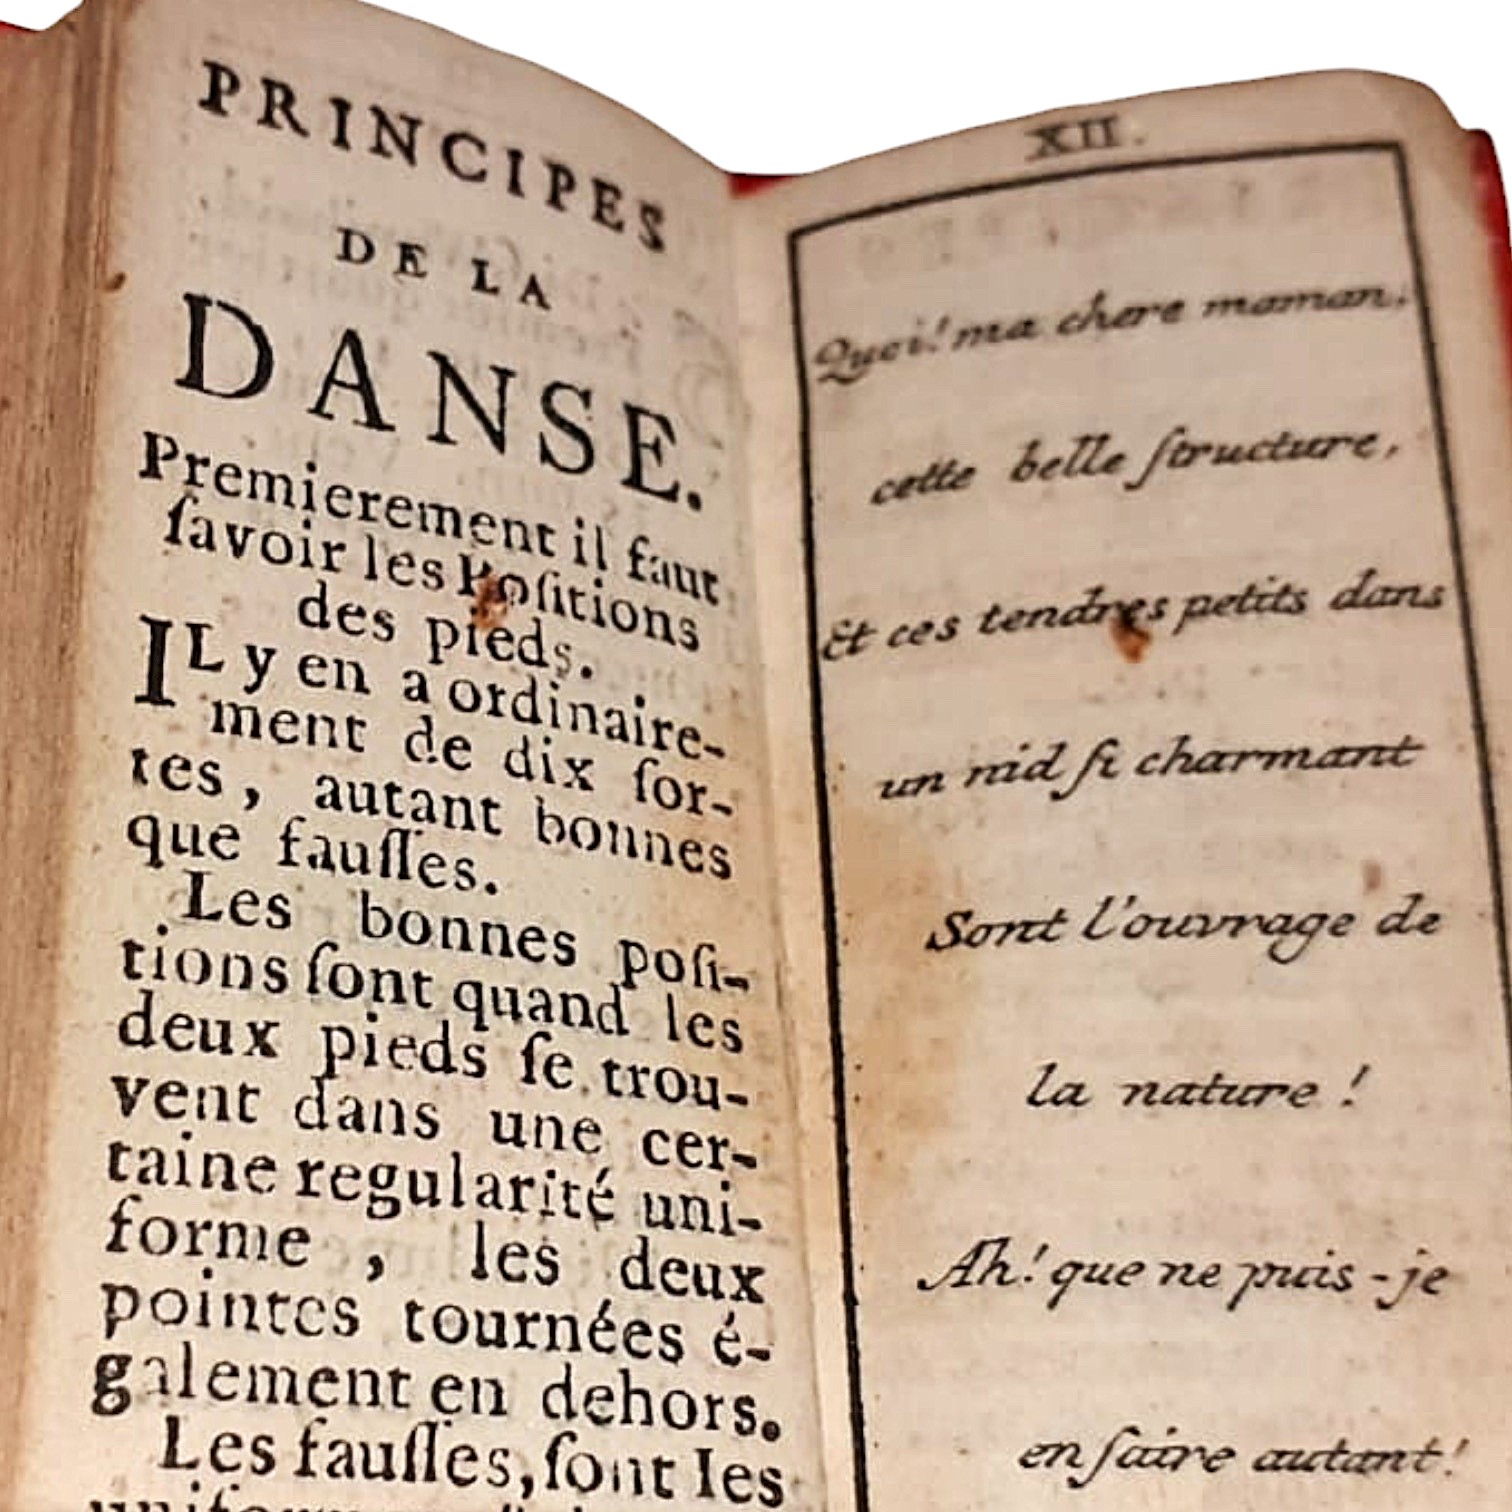 PRINCIPES
DE LA
DANSE.
Premierement il faut
ſavoir les Poſitions
des pieds.
IL y en a ordinaire-
ment de dix ſor-
tes, autant bonnes
que fauſſes.
Les bonnes poſi-
tions ſont quand les
deux pieds ſe trou-
vent dans une cer-
taine regularité uni-
forme , les deux
pointes tournées é-
galement en dehors.
Les fauſſes, ſont les
XII.
Quoi! ma chere maman,
cette belle ſtructure,
Et ces tendres petits dans
un nid ſi charmant
Sont l'ouvrage de
la nature !
Ah! que ne puis-je
en faire autant!